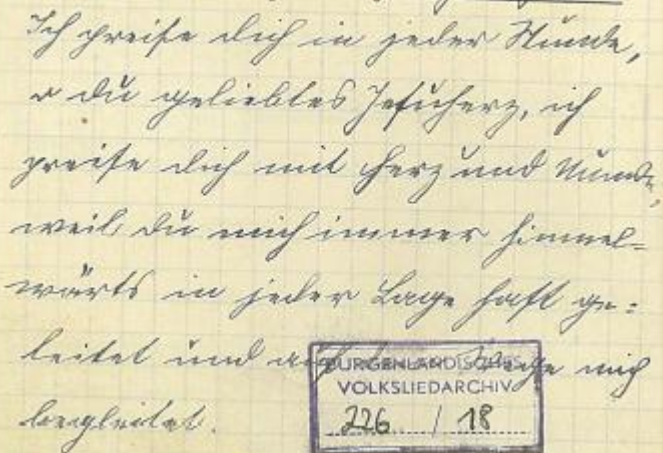 Ich preise dich in jeder Stunde,
o du geliebtes Jesuherz, ich
preise dich mit Herz und Munde,
weil du mich immer himmel-
wärts in jeder Lage hast ge:
leitet und auf dem Wege mich
begleitet.
BURGENLÄNDISCHES
VOLKSLIEDARCHIV
226 / 18